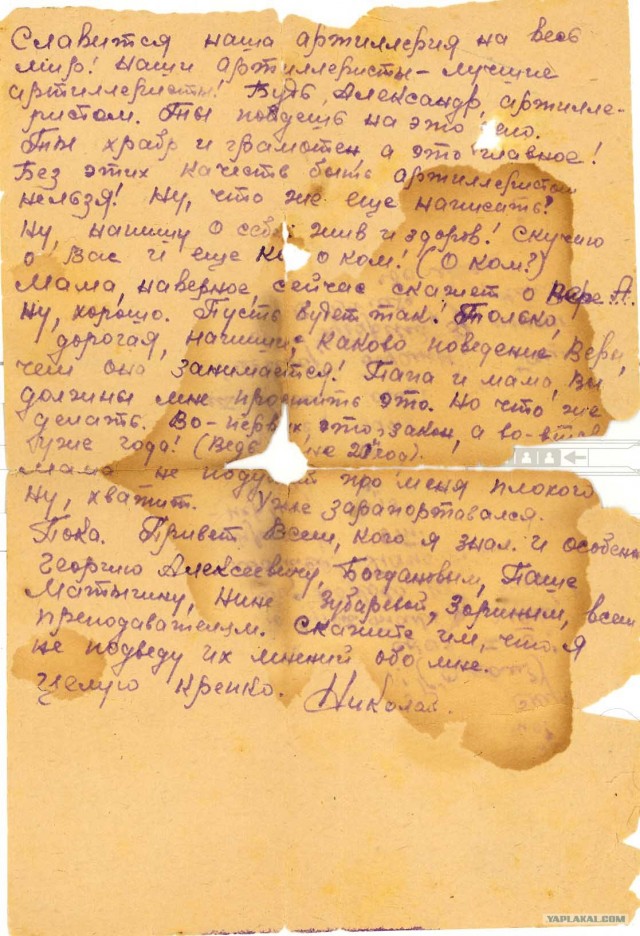 Славится наша артиллерия на весь
мир! Наши артиллеристы - лучшие
артиллеристы! Будь, Александр, артилле-
ристом. Ты пойдешь на это
Ты храбр и грамотен, а это главное!
Без этих качеств быть артиллеристом
нельзя! Ну, что же еще написать?
Ну, напишу о себе жив и здоров! Скучаю
о Вас и еще о ком! (О ком?)
Мама, наверное, сейчас скажет о Вере А.
Ну, хорошо. Пусть будет так! Только,
дорогая, напиши, каково поведение Веры,
чем она занимается! Папа и мама, Вы
должны мне простить это. Но что же
делать. Во-первых это закон, а
уже года! (Ведь мне 21 год).
Мама не подумай про меня плохого
Ну, хватит. Уже зарапортовался.
Пока. Привет всем, кого я знал и
Георгию Алексеевичу, Богдановым, Паше
Матыгину, Нине Зубаревой, Зориным, всем
преподавателям. Скажите им, что я
не подведу их мнений обо мне.
Целую крепко. Николай.
YAPLAKAL.COM